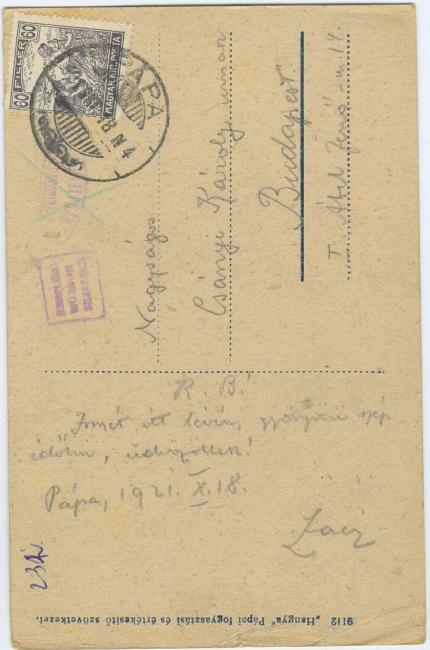 60 FILLER 60
MAGYAR KIR. POSTA
PÁPA
18 N 4
Nagyságos
Csányi Károly úrnak
Budapest
Ábel Jenő-u 14.
K. B.!
Ismét itt lévén, gyönyörű szép
időben, üdvözöllek!
Pápa, 1921. X. 18.
232
9112 „Hangya" Pápai fogyasztási és értékesítő szövetkezet.